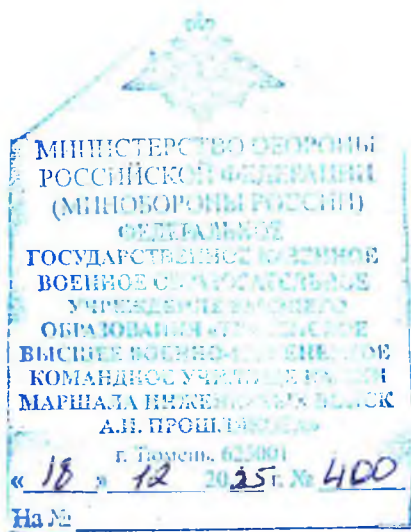 МИНИСТЕРСТВО ОБОРОНЫ
РОССИЙСКОЙ ФЕДЕРАЦИИ
(МИНОБОРОНЫ РОССИИ)
ФЕДЕРАЛЬНОЕ
ГОСУДАРСТВЕННОЕ КАЗЕННОЕ
ВОЕННОЕ ОБРАЗОВАТЕЛЬНОЕ
УЧРЕЖДЕНИЕ ВЫСШЕГО
ОБРАЗОВАНИЯ «ТЮМЕНСКОЕ
ВЫСШЕЕ ВОЕННО-ИНЖЕНЕРНОЕ
КОМАНДНОЕ УЧИЛИЩЕ ИМЕНИ
МАРШАЛА ИНЖЕНЕРНЫХ ВОЙСК
А.И. ПРОШЛЯКОВА»
г. Тюмень, 625001
« 18 » 12 2025 г. № 400
На №